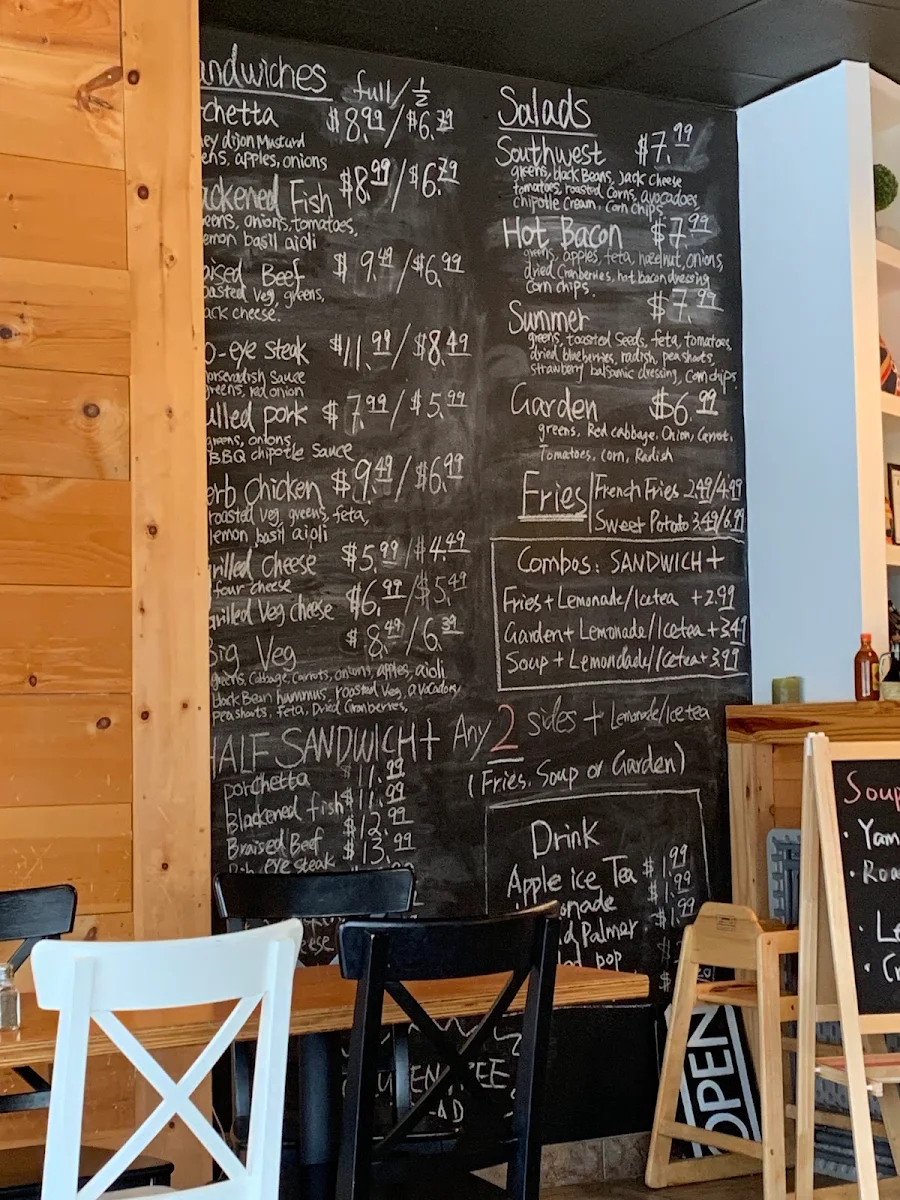 andwiches full/½
chetta $8.99/$6.79
ey dijon Mustard
ens, apples, onions
ackened Fish $8.99/$6.79
eens, onions, tomatoes,
emon basil aioli
aised Beef $9.49/$6.99
oasted veg, greens,
ack cheese.
b-eye steak $11.99/$8.49
orseradish Sauce
greens, red onion
ulled pork $7.99/$5.99
greens, onions,
BBQ chipotle Sauce
erb Chicken $9.49/$6.99
roasted veg, greens, feta,
lemon basil aioli
rilled Cheese $5.99/$4.49
four cheese
grilled Veg cheese $6.99/$5.49
Big Veg $8.49/6.39
greens, Cabbage, Carrots, onions, apples, aioli
black Bean hummus, roasted veg, avocados,
pea shoots, feta, Dried Cranberries,
HALF SANDWICH + Any 2 sides + Lemonade/Ice tea
(Fries, Soup or Garden)
porchetta $11.99
Blackened fish $11.99
Braised Beef $12.99
Rib eye steak $13.99
eese
Salads
Southwest $7.99
greens, black Beans, Jack cheese
tomatoes, roasted Corns, avocadoes,
chipotle Cream. Corn chips
Hot Bacon $7.99
greens, apples, feta, hazelnut, onions,
dried Cranberries, hot bacon dressing
corn chips.
Summer $7.99
greens, toasted Seeds, feta, tomatoes,
dried blueberries, radish, pea shoots,
strawberry balsamic dressing, corn chips
Garden $6.99
greens, Red cabbage, Onion, Carrot,
Tomatoes, corn, Radish
Fries
French Fries 2.49/4.49
Sweet Potato 3.49/6.99
Combos: SANDWICH +
Fries + Lemonade/Icetea +2.99
Garden + Lemonade/Icetea +3.49
Soup + Lemondade/Icetea +3.99
Drink
Apple ice Tea $1.99
onade $1.99
d Palmer $1.99
pop
Soup
· Yam
· Roa
· Le
· Cr
OPEN